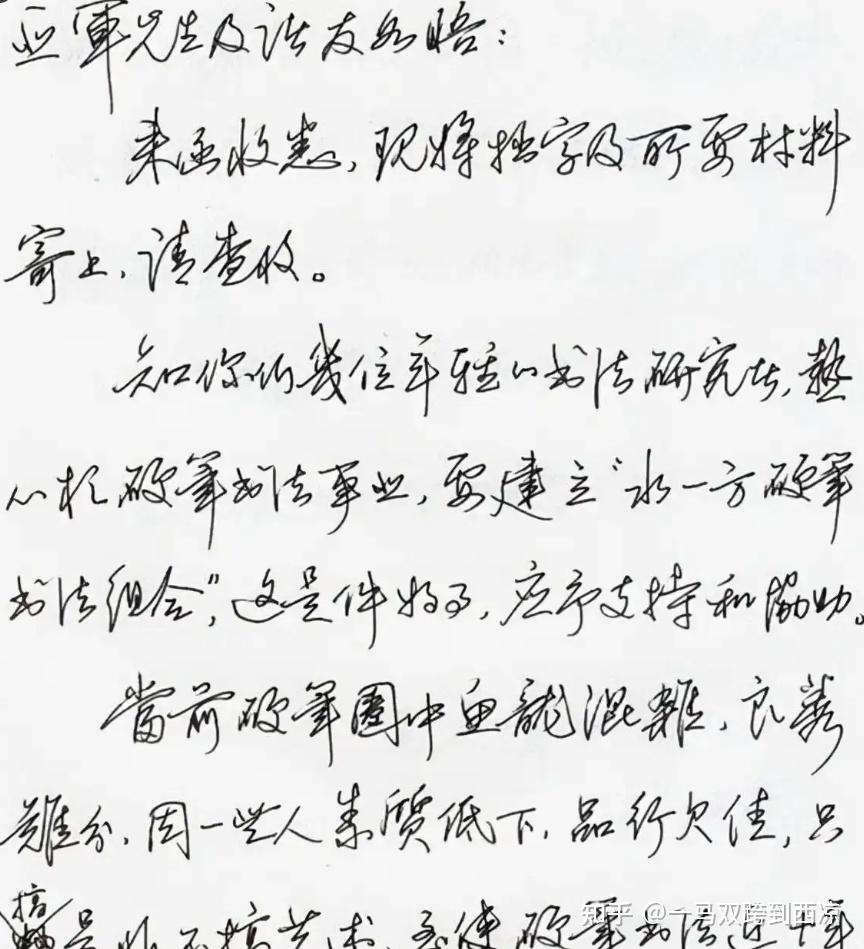 亚軍先生及诸友如晤：
来函收悉，现将拙字及所要材料
寄上，请查收。
知你们幾位年轻的书法研究者，熱
心於硬筆书法事业，要建立“水一方硬筆
书法组合”，这是件好事，应予支持和協助。
當前硬筆圈中鱼龍混雜，良莠
難分，因一些人素質低下，品行欠佳，只
搞
不搞艺术，
硬筆书法
知乎 @一马双跨到西凉